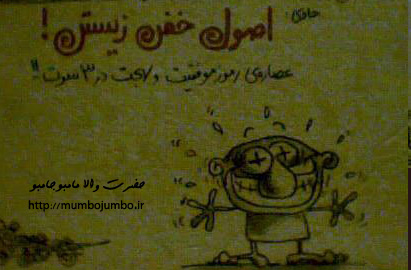 حافظ:
اصول خفن زیستن!
عصاره‌ی رموز موفقیت و لاجت در ۳ سوت!!
حضرت والا مامبوجامبو
http://mumbojumbo.ir